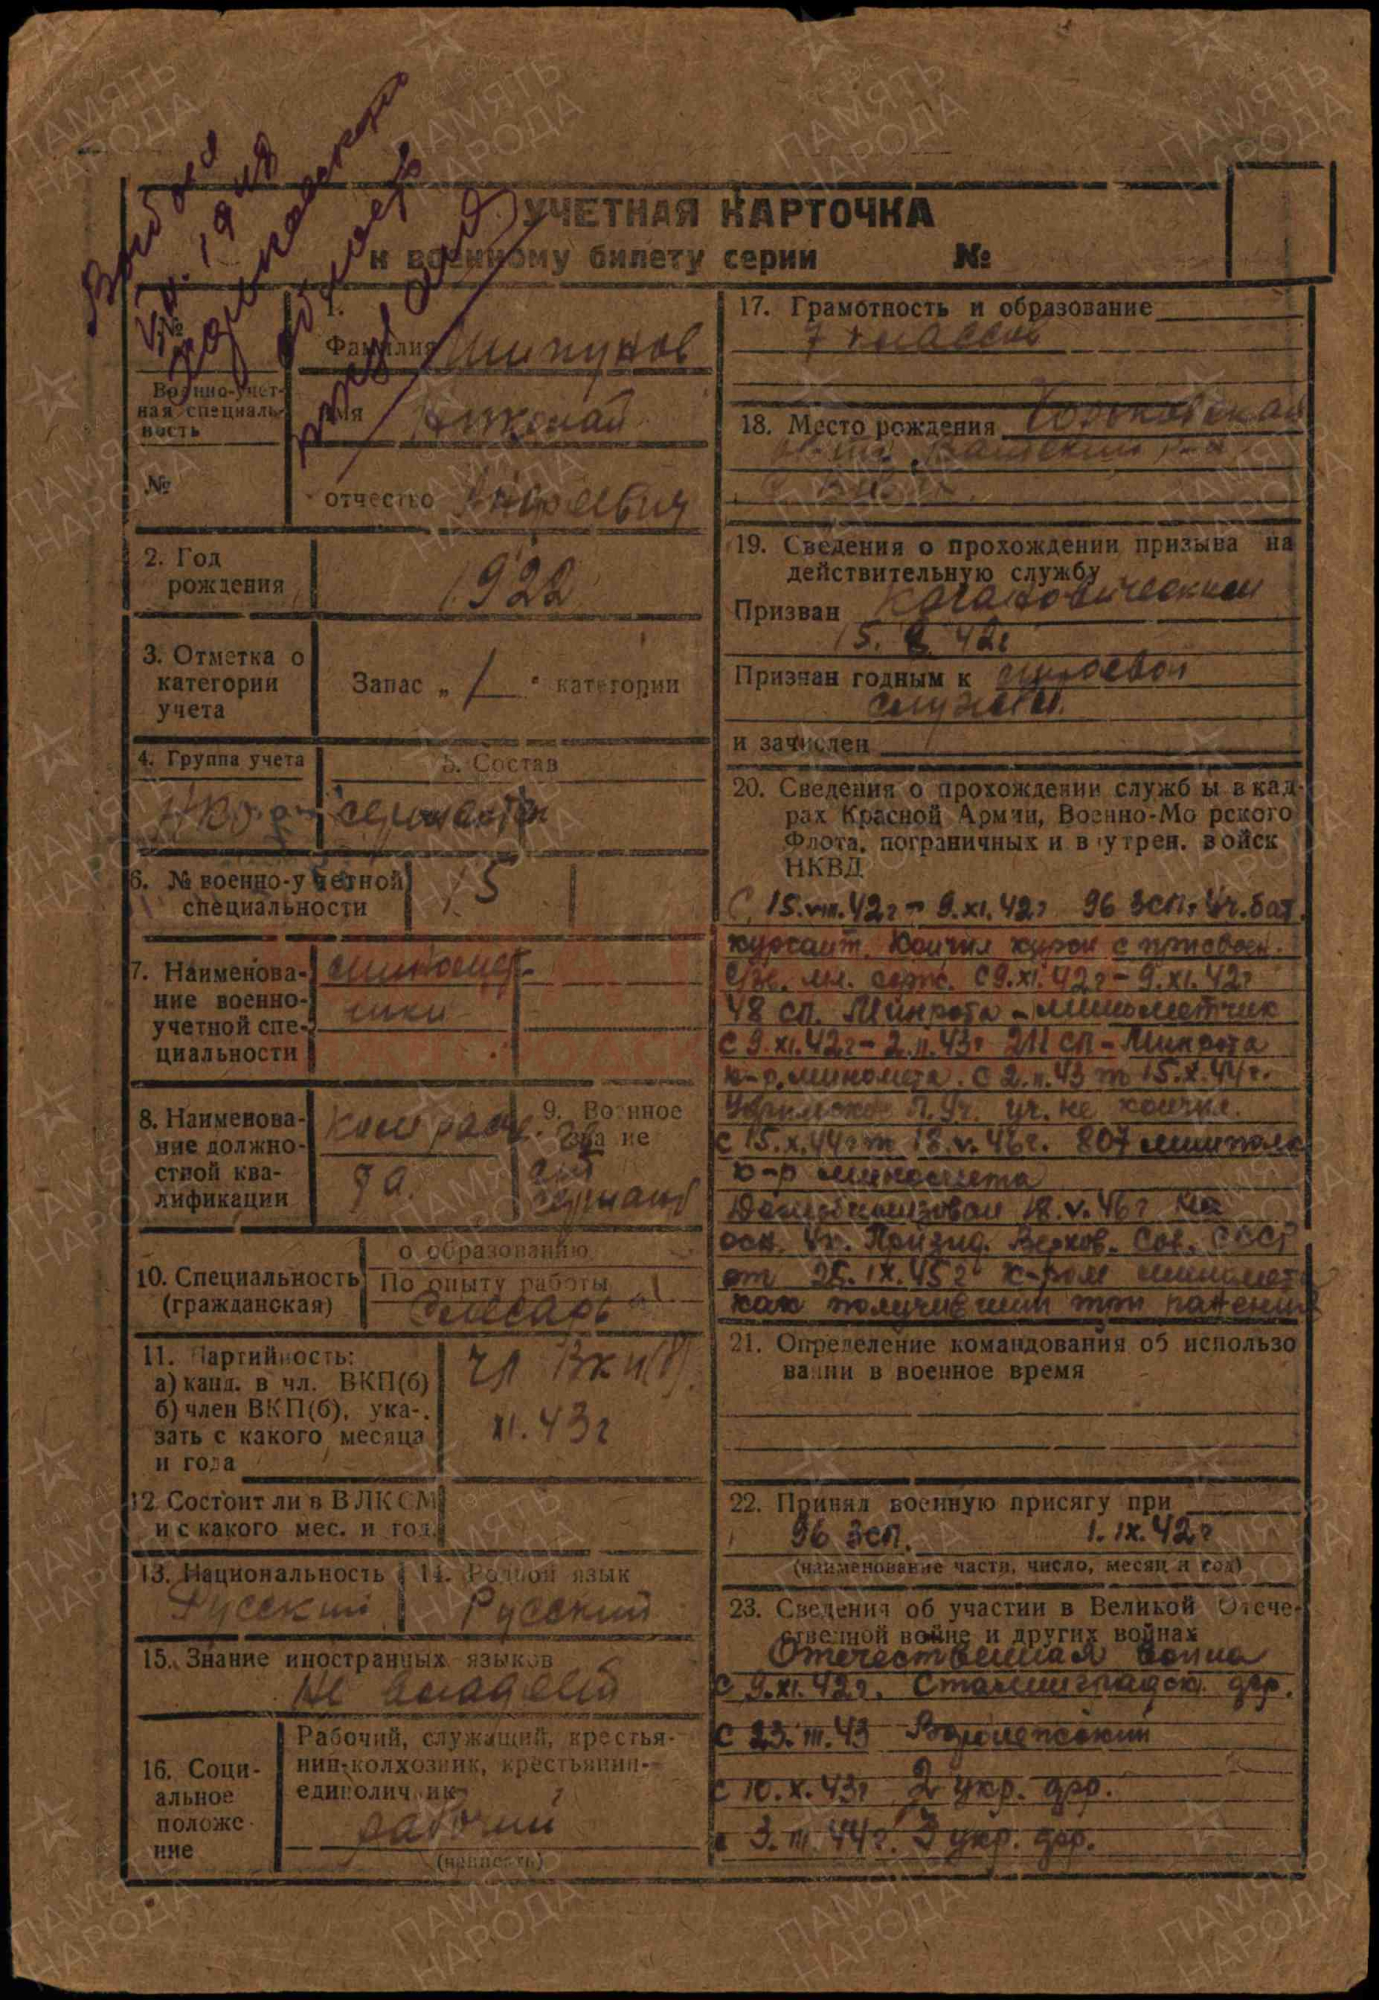 УЧЕТНАЯ КАРТОЧКА
к военному билету серии №
№
Военно-учет-
ная специаль-
ность
№
1.
Фамилия Шипунов
Имя Николай
отчество Андреевич
2. Год
рождения
1922
3. Отметка о
категории
учета
Запас „1" категории
4. Группа учета
5. Состав
сержантск
6. № военно-учетной
специальности
15
7. Наименова-
ние военно-
учетной спе-
циальности
миномет-
чики
8. Наименова-
ние должно-
стной ква-
лификации
9. Военное
звание
сержант
10. Специальность
(гражданская)
о образованию
По опыту работы
Слесарь
11. Партийность:
а) канд. в чл. ВКП(б)
б) член ВКП(б), ука-
зать с какого месяца
и года
чл ВКП(б).
XI.43г
12. Состоит ли в ВЛКСМ
и с какого мес. и год.
13. Национальность
Русский
14. Родной язык
Русский
15. Знание иностранных языков
Не владеет
16. Соци-
альное
положе-
ние
Рабочий, служащий, крестья-
нин-колхозник, крестьянин-
единоличник
рабочий
(написать)
17. Грамотность и образование
7 классов
18. Место рождения Горьковская
обл.
19. Сведения о прохождении призыва на
действительную службу
Призван Кагановическим
15. 8. 42г
Признан годным к строевой
службы.
и зачислен
20. Сведения о прохождении служб ы в кад-
рах Красной Армии, Военно-Мо рского
Флота, пограничных и внутрен. войск
НКВД
С 15.VIII.42г – 9.XI.42г 96 зсп. Уч.бат.
курсант. Кончил курсы с присвоен.
зв. мл. серж. С 9.XI.42г – 9.XI.42г
48 сп. Минрота – минометчик
с 9.XI.42г – 2.II.43г 211 сп – Минрота
к-р. миномета. С 2.II.43 по 15.X.44г.
П. Уч. уч. не кончил.
с 15.X.44г по 18.V.46г. 807 минполк
к-р миномета
Демобилизован 18.V.46г на
осн. Ук. Презид. Верхов. Сов. СССР
от 25.IX.45г к-ром миномета
как получивший три ранения
21. Определение командования об использо
вании в военное время
22. Принял военную присягу при
96 зсп. 1.IX.42г
(наименование части, число, месяц и год)
23. Сведения об участии в Великой Отече-
ственной войне и других войнах
Отечественная война
с 9.XI.42г. Сталинградск. фр.
с 23.III.43 Воронежский
с 10.X.43г 2 укр. фр.
с 3.III.44г. 3 укр. фр.
ПАМЯТЬ
НАРОДА